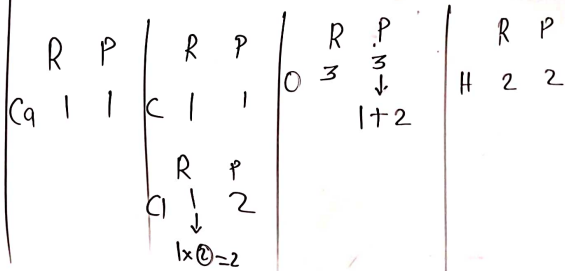 R P
Ca 1 1
R P
C 1 1
R P
Cl 1 2
↓
1×②=2
R P
O 3 3
↓
1+2
R P
H 2 2